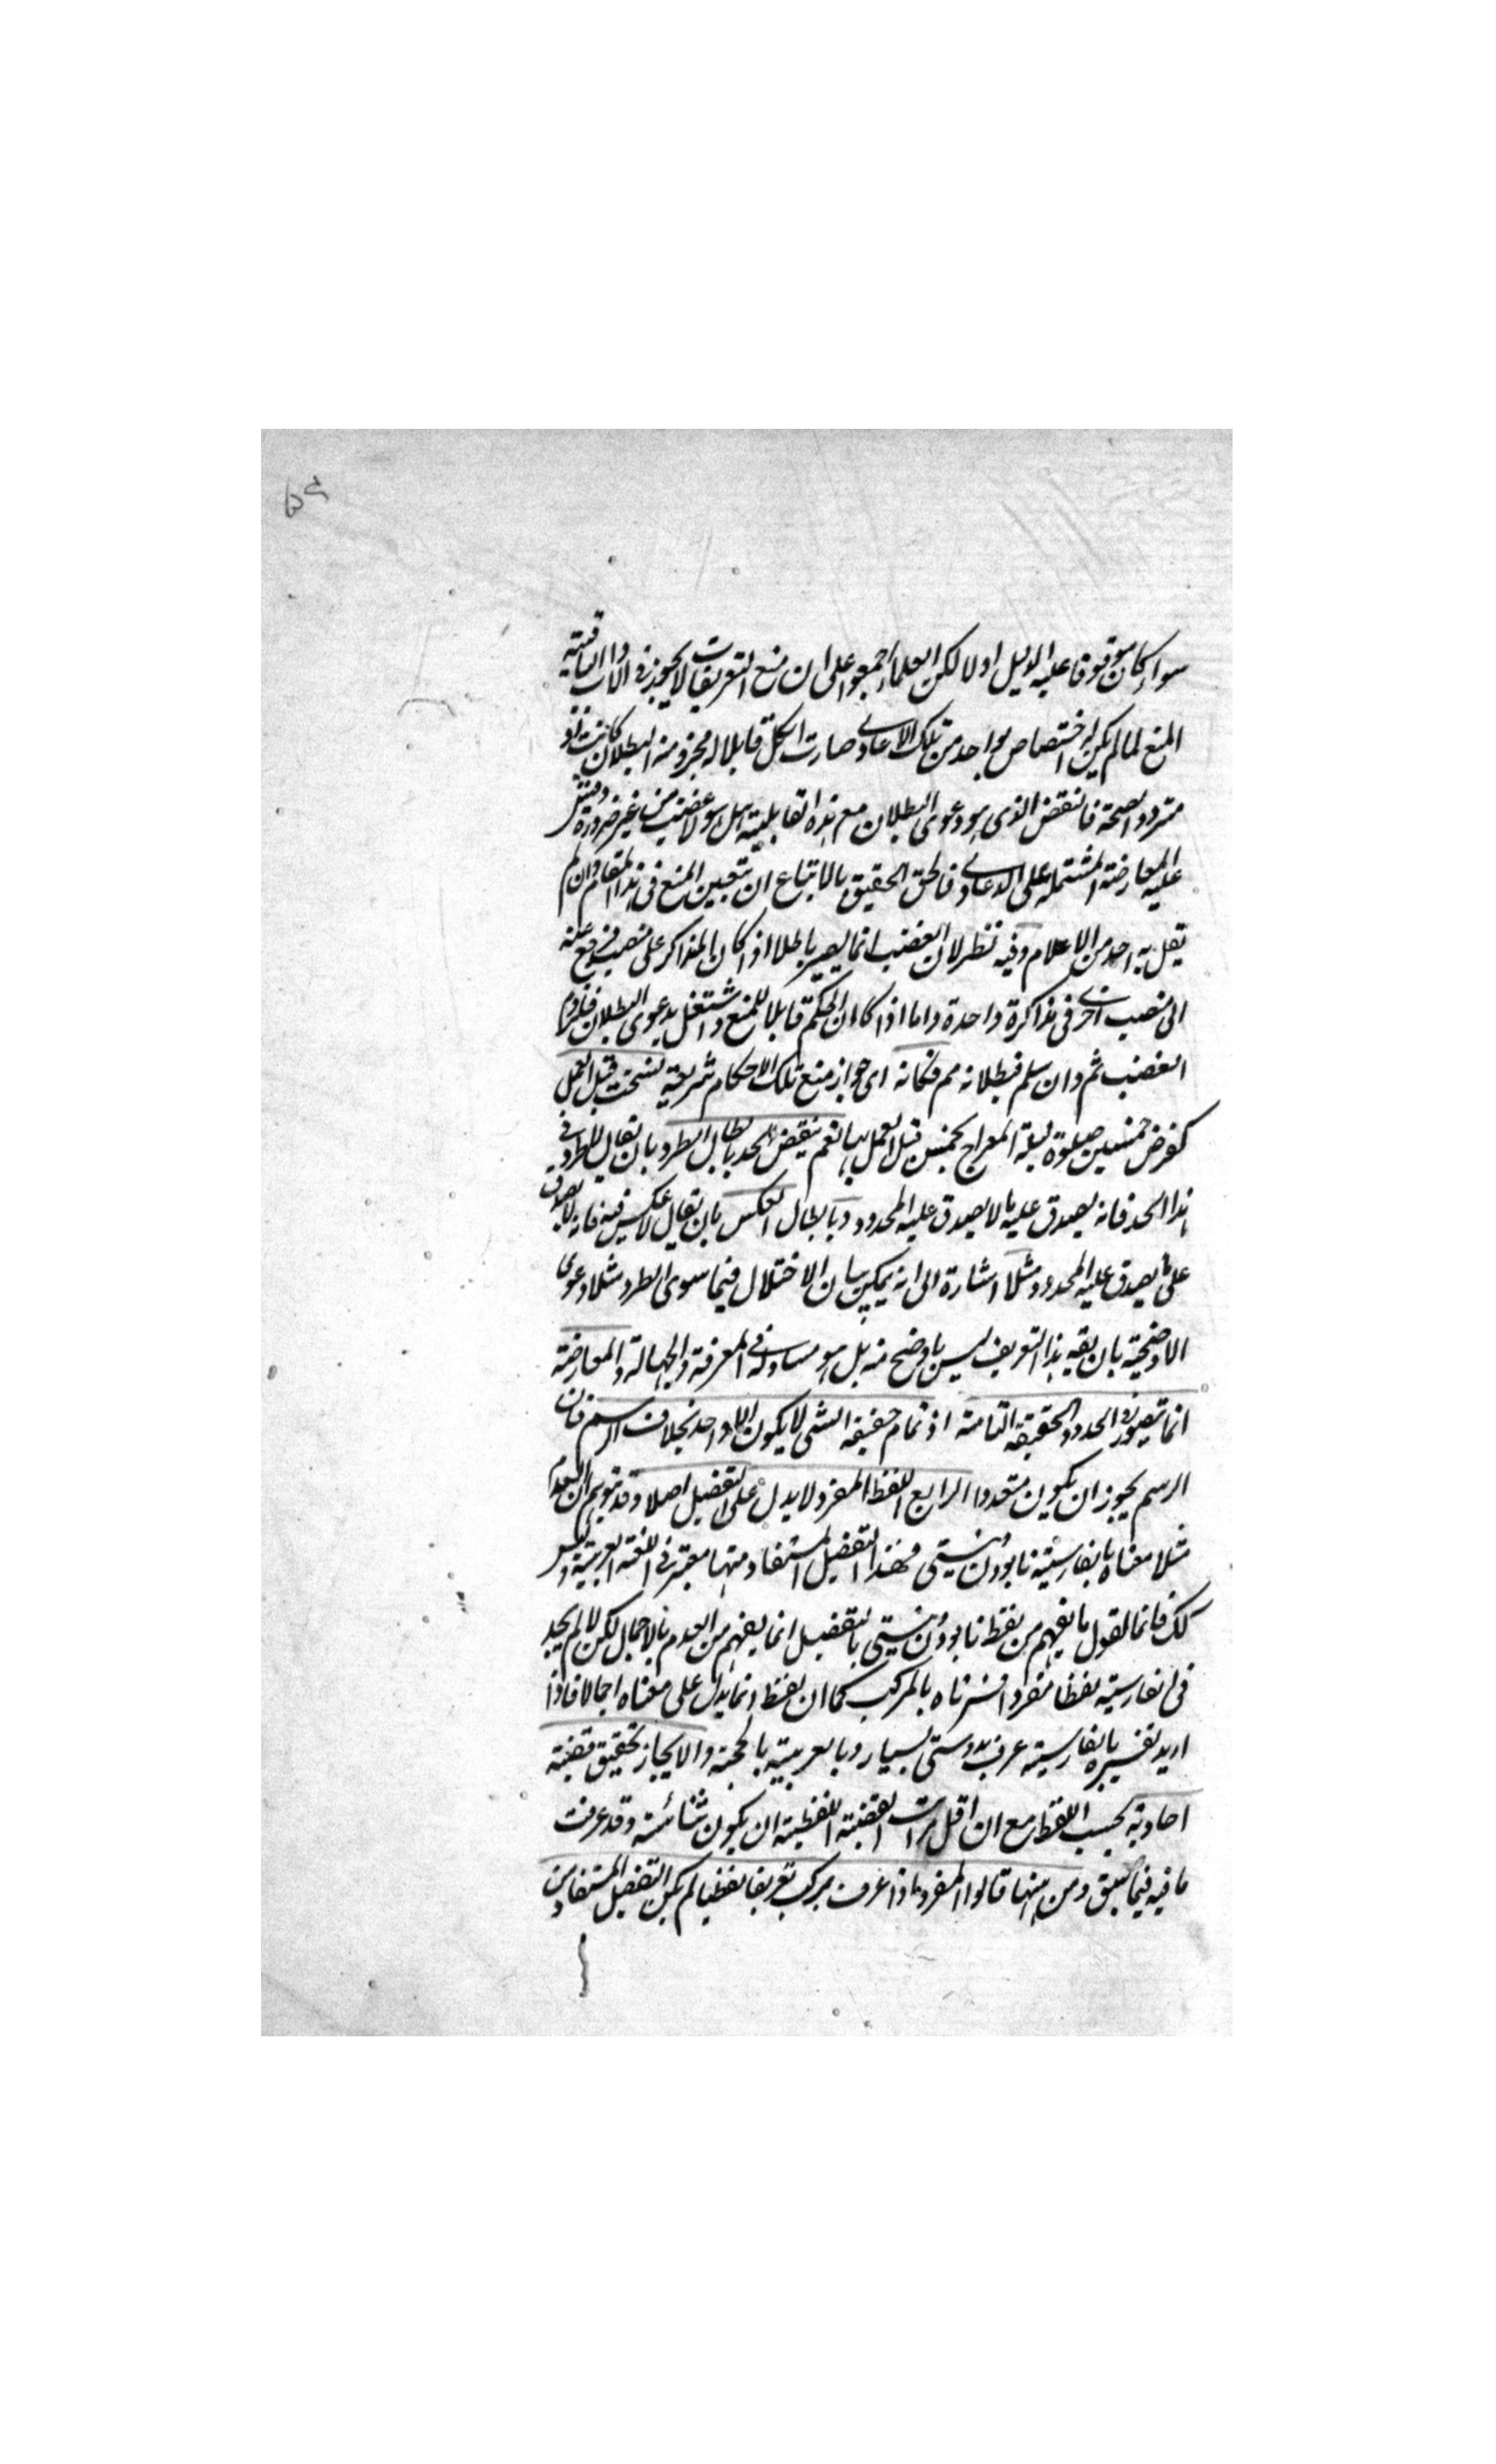 ٥٩
سواء كان موقوفا عليه الدليل اولا لكن العلماء اجمعوا على ان منع التعريفات لا يجوز
المنع لما لم يكن له اختصاص بواحد من تلك الدعاوى صارت الكل قابلا له فجزم منه البطلان كانت
متردد الصحة فالنقض الذى هو دعوى البطلان مع هذه القابلية هل هو الا غصب من غير ضرورة
عليه المعارضة المشتملة على الدعاوى فالحق الحقيق بالاتباع ان يتعين المنع فى هذا المقام وان لم
يقل به احد من الاعلام وفيه نظر لان الغصب انما يصير باطلا اذا كان المذاكر على منصب فرفع عنه
الى منصب اخرى فى مذاكرة واحدة واما اذا كان الحكم قابلا للمنع واشتغل بدعوى البطلان فلزوم
الغصب ثم وان سلم فبطلانه مم فكانه اى جواز منع تلك الاحكام شريعة نسخت قبل العمل
كفرض خمسين صلوة ليلة المعراج بخمس قبل العمل بها نعم ينقض الحد بابطال الطرد بان يقال لا طرد فى
هذا الحد فانه يصدق عليه ما لا يصدق عليه المحدود وبابطال العكس بان يقال لا عكس فيه فانه لا يصدق
على ما يصدق عليه المحدود مثلا اشارة الى انه يمكن بيان الاختلال فيما سوى الطرد مثلا دعوى
الاوضحية بان يقه هذا التعريف ليس باوضح منه بل هو مساو له فى المعرفة والجهالة والمعارضة
انما تتصور فى الحدود الحقيقة التامة اذ تمام حقيقة الشى لا يكون الا واحد بخلاف الرسم فان
الرسم يجوز ان يكون متعددا الرابع اللفظ المفرد لا يدل على التفصيل اصلا وقد يتوهم ان العدم
مثلا معناه بالفارسية نابودن ونيستى فهذا التفصيل المستفاد منها معتبر فى اللغة العربية وليس
كك فانما نقول ما يفهم من لفظ نابودن ونيستى بالتفصيل انما يفهم من العدم بالاجمال لكن لما لم يجد
فى الفارسية لفظا مفردا فسرناه بالمركب كما ان لفظ انما يدل على معناه اجمالا فاذا
اريد تفسيره بالفارسية عرف بدوستى بسيار وبالعربية بالمحبة والايجاز تحقيق قضية
احادية بحسب اللفظ مع ان اقل مراتب القضية اللفظية ان يكون ثنائية وقد عرفت
ما فيه فيما سبق ومن ههنا قالوا المفرد اذا عرف بمركب تعريفا لفظيا لم يكن التفصيل المستفاد من